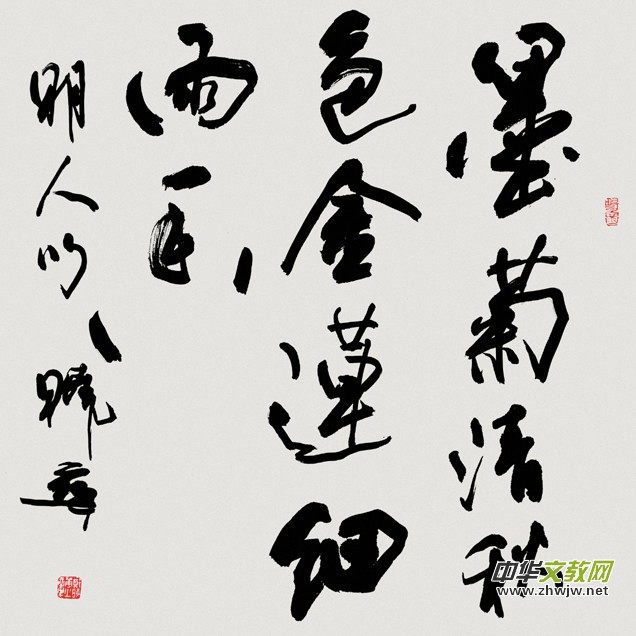 墨菊清秋
色金蓮細
雨香
明人句 曉
中华文教网
www.zhwjw.net